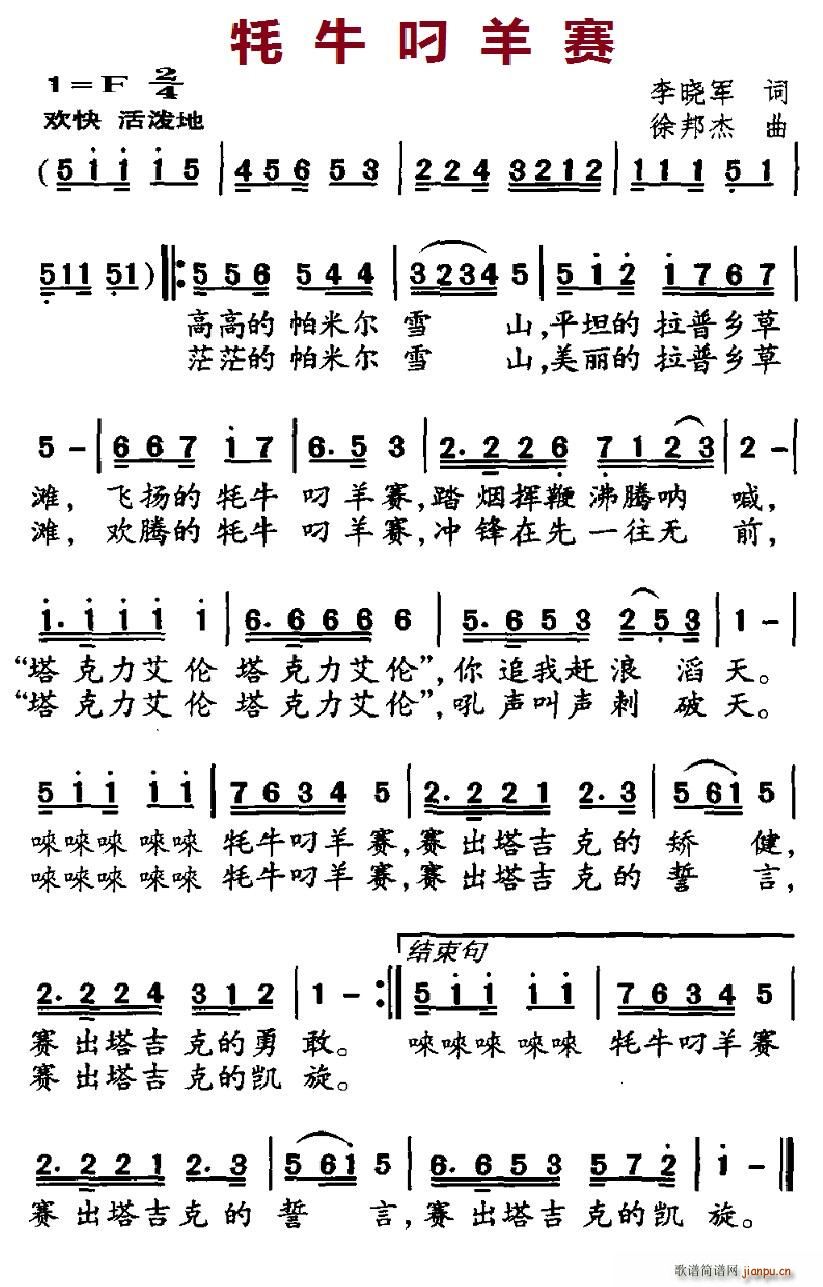 牦牛叼羊赛
1=F 2/4
李晓军 词
欢快 活泼地
徐邦杰 曲
(5 1 1 1 5 | 4 5 6 5 5 3 | 2 2 4 3 2 1 2 | 1 1 1 5 1 |
5 1 1 5 1) |: 5 5 6 5 4 4 | 3 2 3 4 5 | 5 1 2 1 7 6 7 |
高高的 帕米尔 雪 山,平坦的 拉普乡草
茫茫的 帕米尔 雪 山,美丽的 拉普乡草
5 - | 6 6 7 1 7 | 6. 5 3 | 2. 2 2 6 7 1 2 3 | 2 - |
滩, 飞扬的 牦牛 叼羊赛,踏烟挥鞭 沸腾呐 喊,
滩, 欢腾的 牦牛 叼羊赛,冲锋在先 一往无 前,
1. 1 1 1 1 | 6. 6 6 6 6 | 5. 6 5 3 2 5 3 | 1 - |
“塔克力艾伦 塔克力艾伦”,你追我赶浪 滔天。
“塔克力艾伦 塔克力艾伦”,吼声叫声刺 破天。
5 1 1 1 1 | 7 6 3 4 5 | 2. 2 2 1 2. 3 | 5 6 1 5 |
唻唻唻 唻唻 牦牛叼羊赛,赛出塔吉克的 矫 健,
唻唻唻 唻唻 牦牛叼羊赛,赛出塔吉克的 誓 言,
结束句
2. 2 2 4 3 1 2 | 1 - :| 5 1 1 1 1 | 7 6 3 4 5 |
赛出塔吉克的勇 敢。 唻唻唻 唻唻 牦牛叼羊赛
赛出塔吉克的凯 旋。
2. 2 2 1 2. 3 | 5 6 1 5 | 6. 6 5 3 5 7 2 | 1 - ‖
赛出塔吉克的 誓 言,赛出塔吉克的凯 旋。
歌谱简谱网
jianpu.cn